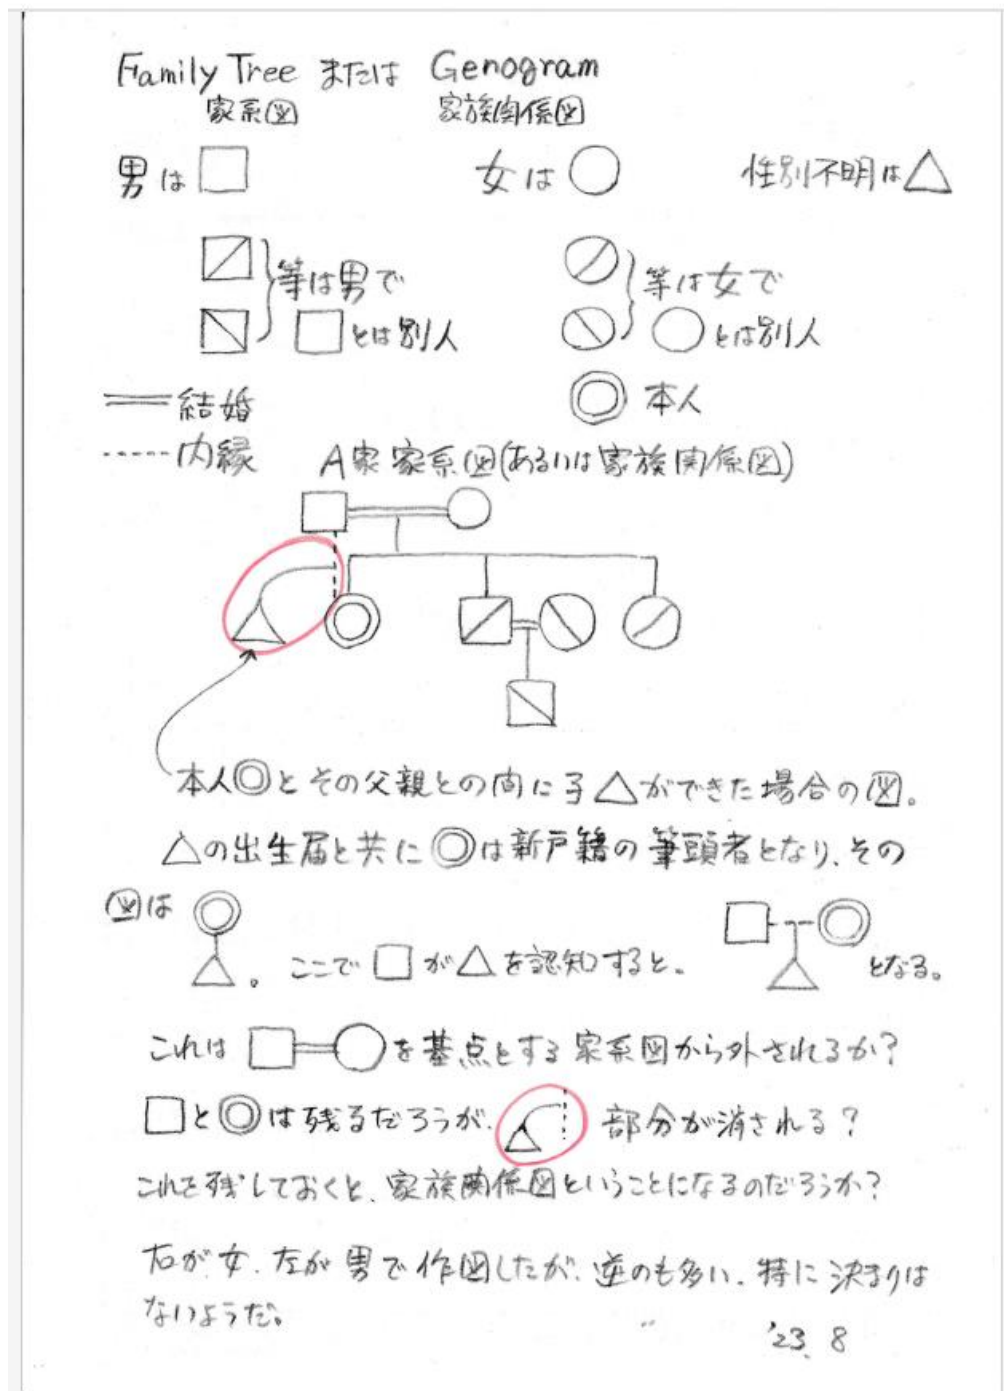 Family Tree または Genogram
家系図 家族関係図
男は□ 女は○ 性別不明は△
等は男で 等は女で
□とは別人 ○とは別人
結婚 ◎本人
内縁 A家家系図(あるいは家族関係図)
本人◎とその父親との間に子△ができた場合の図。
△の出生届と共に◎は新戸籍の筆頭者となり、その
図は 。ここで□が△を認知すると、 となる。
これは□=○を基点とする家系図から外されるか?
□と◎は残るだろうが、 部分が消される?
これを残しておくと、家族関係図ということになるのだろうか?
右が女、左が男で作図したが、逆のも多い、特に決まりは
ないようだ。
'23. 8